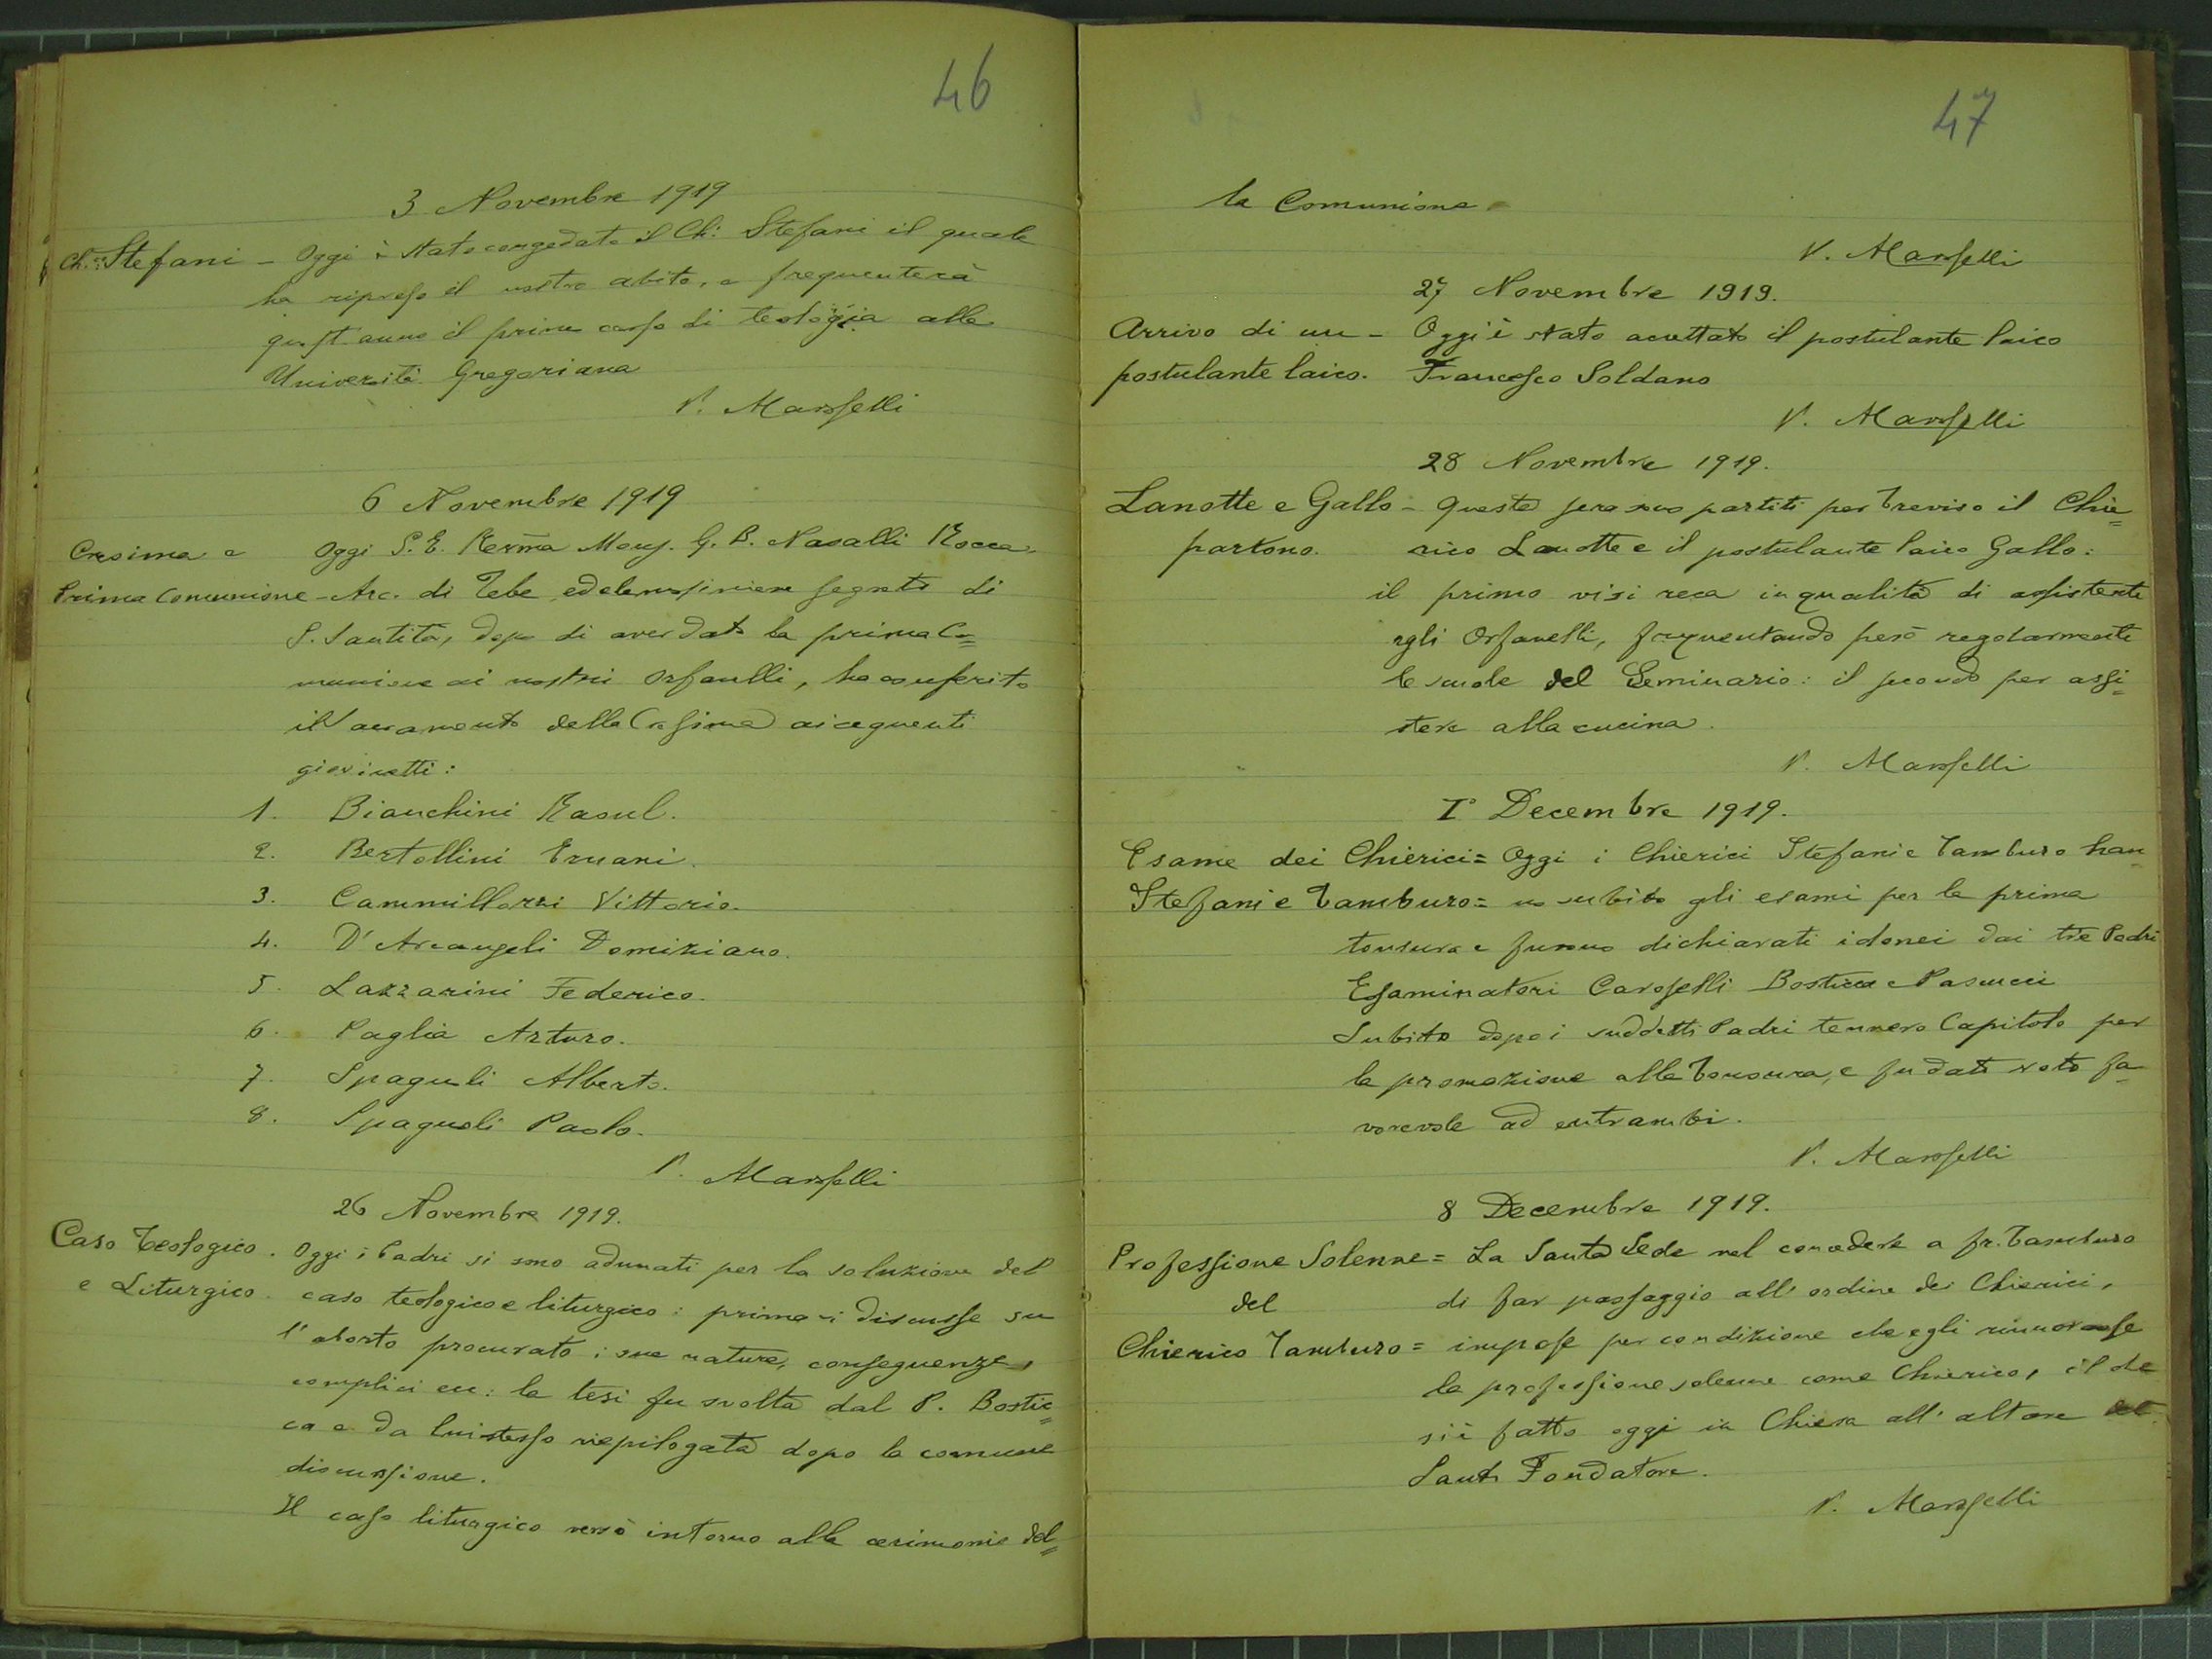 46
3 Novembre 1919
Ch. Stefani - Oggi è stato congedato il Ch: Stefani il quale
ha ripreso il nostro abito, e frequenterà
quest'anno il primo corso di teologia alla
Università Gregoriana
P. Marsselli
6 Novembre 1919
Cresima e Oggi S. E. Rev̄ma Mons. G. B. Nasalli Rocca
Prima Comunione - Arc. di Tebe ed elemosiniere segreto di
S. Santità, dopo di aver dato la prima Co=
munione ai nostri Orfanelli, ha conferito
il Sacramento della Cresima ai seguenti
giovinetti:
1. Bianchini Raoul.
2. Bertollini Ernani.
3. Cammillozzi Vittorio.
4. D'Arcangeli Domiziano.
5. Lazzarini Federico.
6. Paglia Arturo.
7. Spagnoli Alberto.
8. Spagnoli Paolo.
P. Marsselli
26 Novembre 1919.
Caso Teologico. Oggi i Padri si sono adunati per la soluzione del
e Liturgico. caso teologico e liturgico: prima si discusse su
l'aborto procurato: sue nature, conseguenze,
complici ecc: la tesi fu svolta dal P. Bostic=
ca e da lui stesso riepilogata dopo la comune
discussione.
Il caso liturgico versò intorno alle cerimonie del=
47
la Comunione
P. Marsselli
27 Novembre 1919.
Arrivo di un - Oggi è stato accettato il postulante laico
postulante laico. Francesco Soldano
P. Marsselli
28 Novembre 1919.
Lanotte e Gallo - Questa sera sono partiti per Treviso il Chie=
partono. rico Lanotte e il postulante laico Gallo:
il primo visi reca in qualità di assistente
agli Orfanelli, frequentando però regolarmente
le scuole del Seminario: il secondo per assi=
stere alla cucina.
P. Marsselli
I° Decembre 1919.
Esame dei Chierici = Oggi i Chierici Stefani e Tamburo han
Stefani e Tamburo = no subito gli esami per la prima
tonsura e furono dichiarati idonei dai tre Padri
Esaminatori Caroselli Bosticca e Pascucci
Subito dopo i suddetti Padri tennero Capitolo per
la promozione alla Tonsura, e fu dato voto fa=
vorevole ad entrambi.
P. Marsselli
8 Decembre 1919.
Professione Solenne = La Santa Sede nel concedere a fr. Tamburo
del di far passaggio all'ordine dei Chierici,
Chierico Tamburo = impose per condizione che egli rinnovasse
la professione solenne come Chierico, il che
si è fatto oggi in Chiesa all'altare del
Santo Fondatore.
P. Marsselli